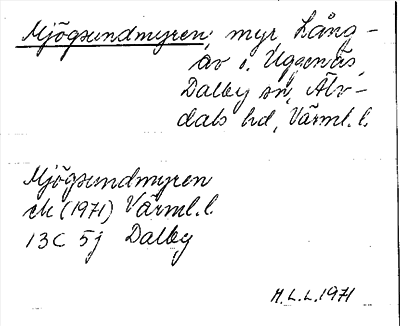 Mjögsundmyren, myr Lång-
av i. Uggenäs,
Dalby sn, Älv-
dals hd, Värml. l.
Mjögsundmyren
ek (1971) Värml. l.
13C 5j Dalby
H.L.L. 1971